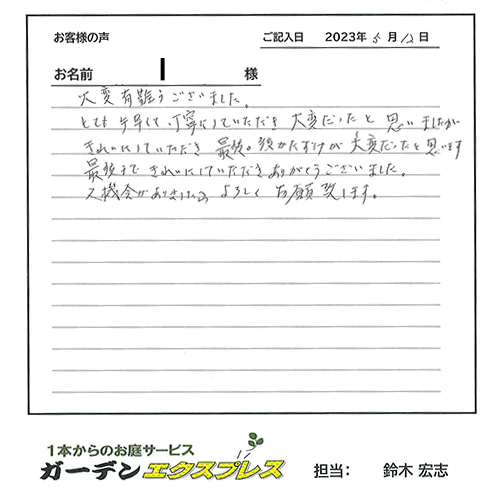 お客様の声
ご記入日 2023年 5月12日
お名前 様
大変有難うございました。
とても手早くて、丁寧にしていただき 大変だったと 思いましたが
きれいにしていただき 最後の後かたずけが 大変だったと思います
最後まで きれいにしていただきありがとうございました。
又機会がありましたら よろしく お願い致します。
1本からのお庭サービス
ガーデンエクスプレス 担当: 鈴木 宏志